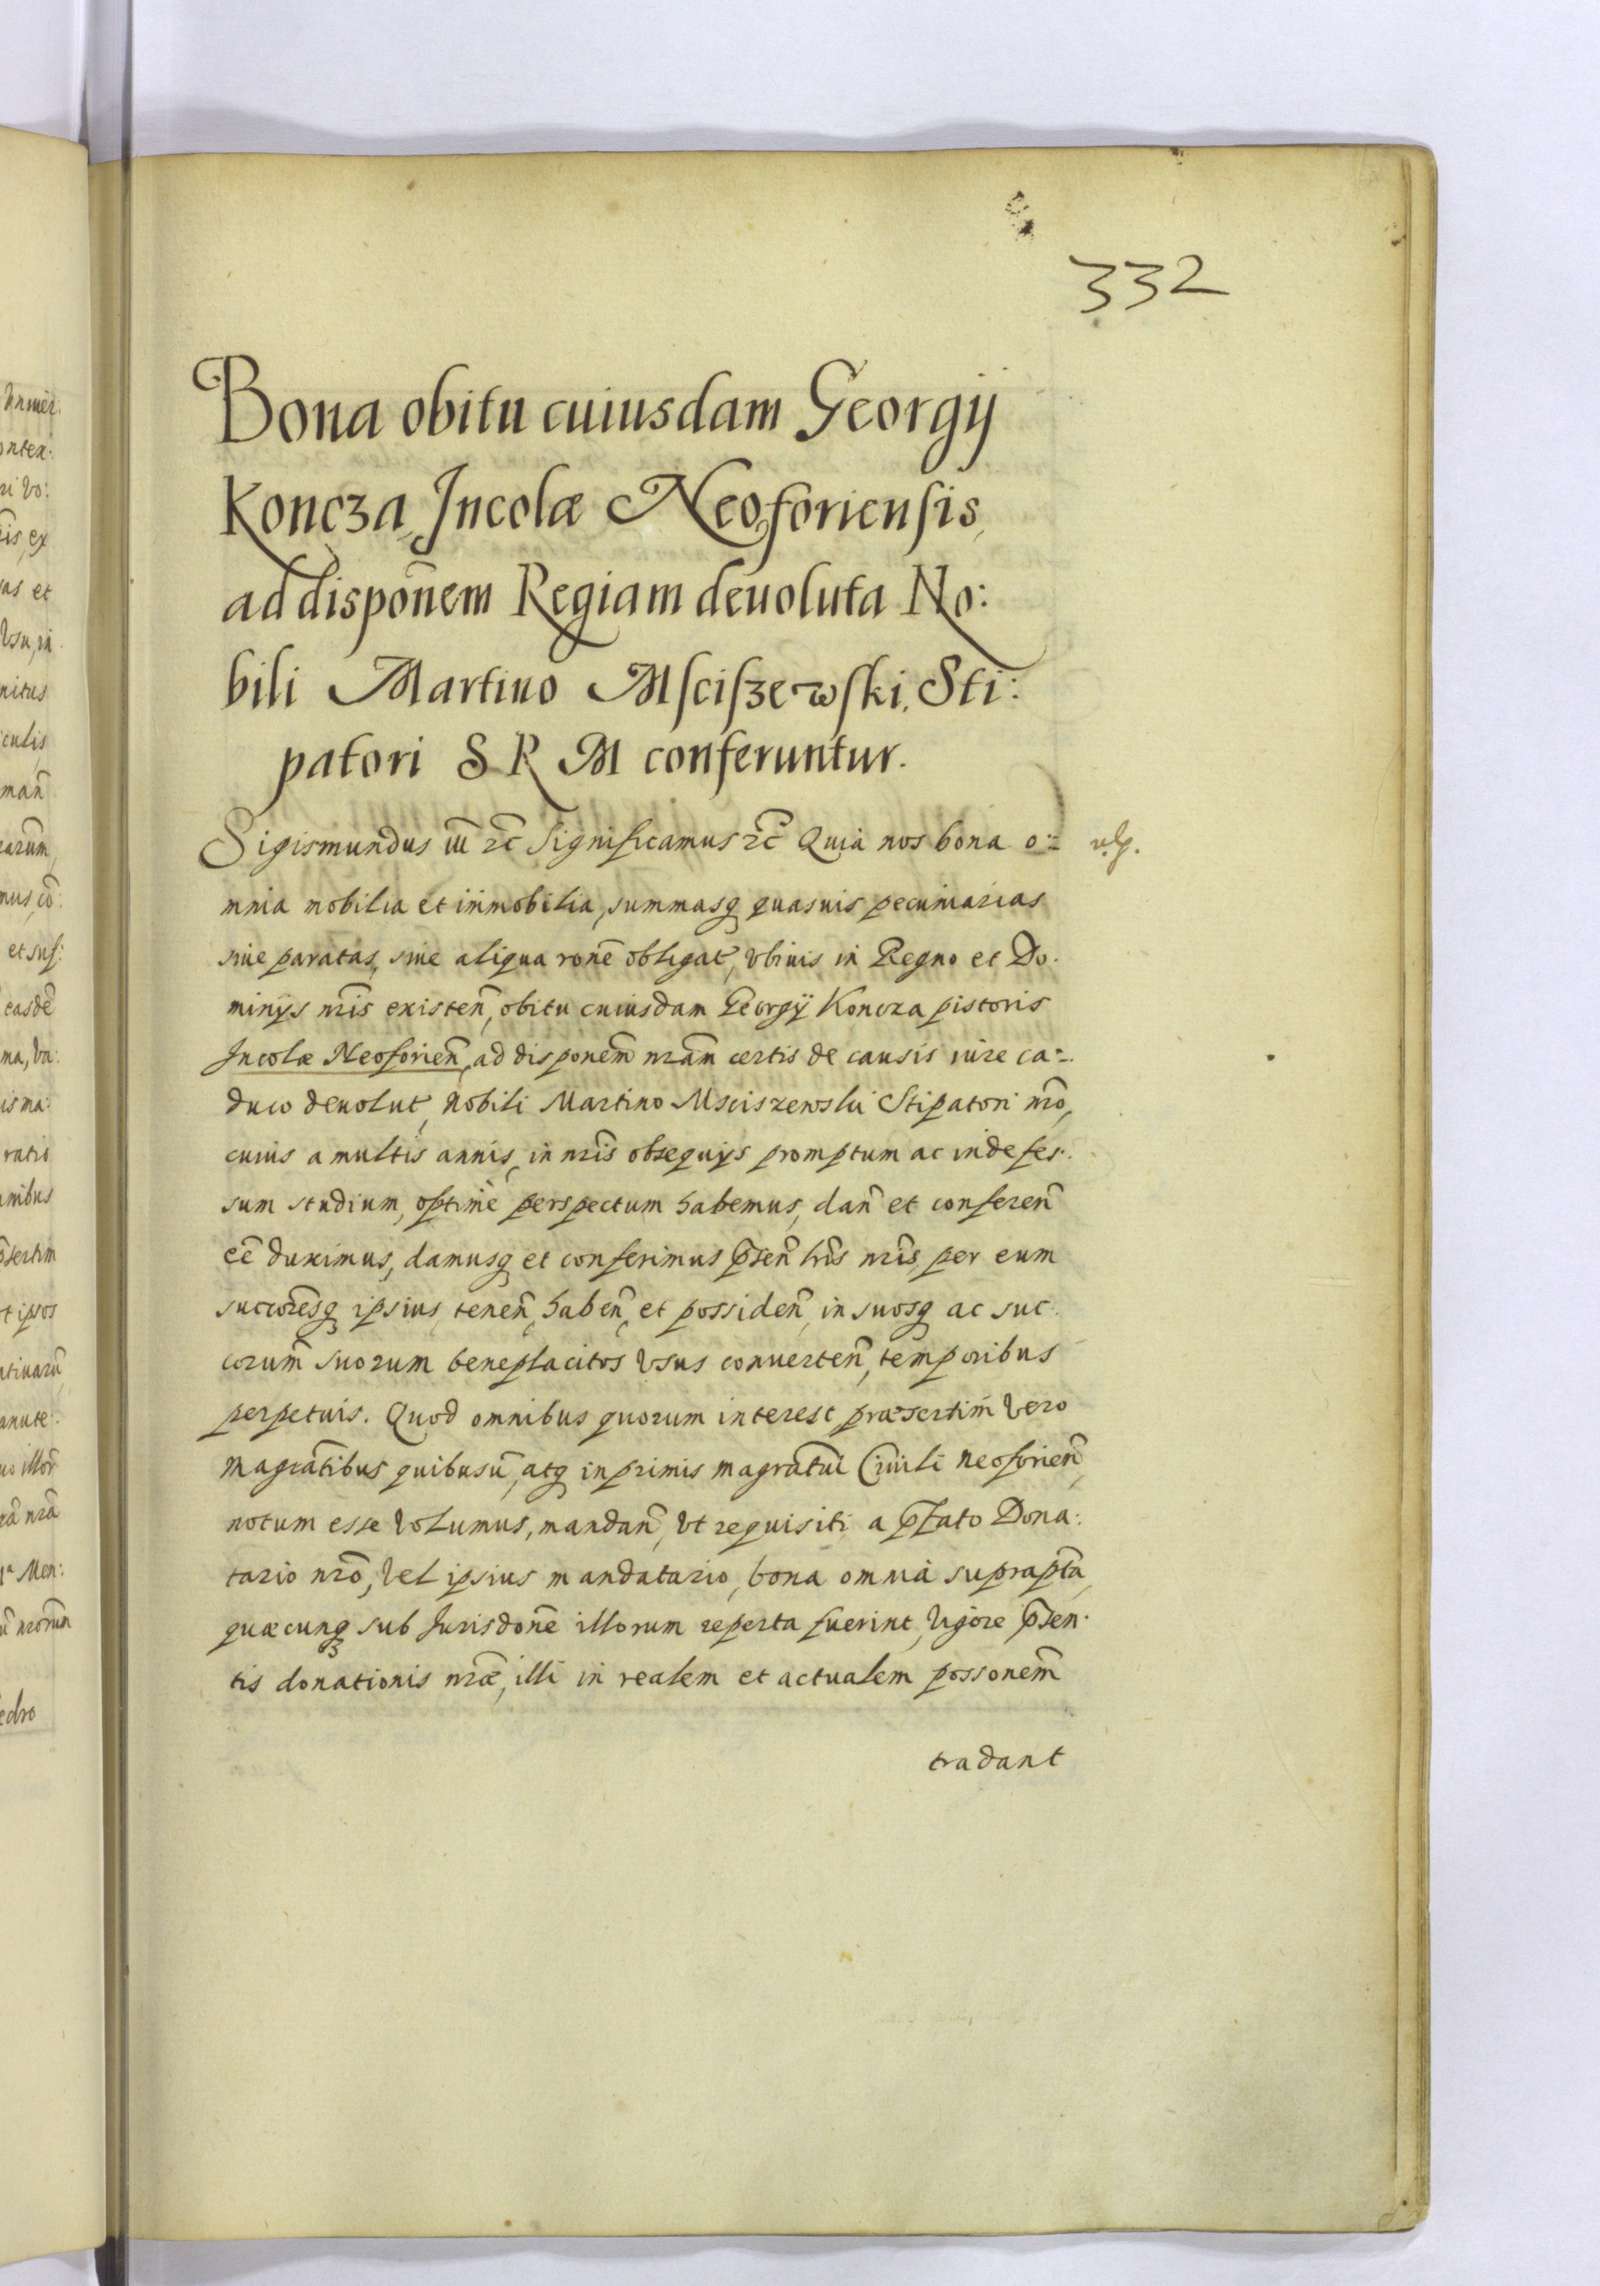 332
Bona obitu cuiusdam Georgij
Koncza, Incolæ Neoforiensis,
ad disponẽm Regiam deuoluta No:
bili Martino Mſciſzewſki, Sti:
patori S R M conferuntur.
Sigismundus iii ꝛc̃ Significamus ꝛc̃ Quia nos bona o:
mnia mobilia et immobilia, summasq quasuis pecuniarias
siue paratas, siue aliqua ronẽ obligat, vbiuis in Regno et Do.
minijs nrĩs existeñ, obitu cuiusdam Georgij Koncza pistoris
Incolæ Neoforieñ, ad disponem̃ nrãm certis de causis iure ca:
duco deuolut, Nobili Martino Msciszewski Stipatori nrõ,
cuius a multis annis, in nrĩs obsequijs promptum ac indefes:
sum studium, optimè perspectum habemus, dañ et confereñ
eẽ duximus, damusq et conferimus p̃señ lrĩs nrĩs, per eum
succorẽsq ipsius, teneñ, habeñ, et possideñ, in suosq ac suc:
corum̃ suorum beneplacitos vsus conuerteñ, temporibus
perpetuis. Quod omnibus quorum interest, præsertim vero
Magrãtibus quibusũ, atq inprimis magrãtui Ciuili Neoforieñ,
notum esse volumus, mandañ, vt requisiti a p̃fato Dona:
tario nrõ, vel ipsius mandatario, bona omnia suprap̃ta,
quæcunq sub Jurisdonẽ illorum reperta fuerint, vigore p̃sen:
tis donationis nræ̃, illi in realem et actualem possonem̃
tradant